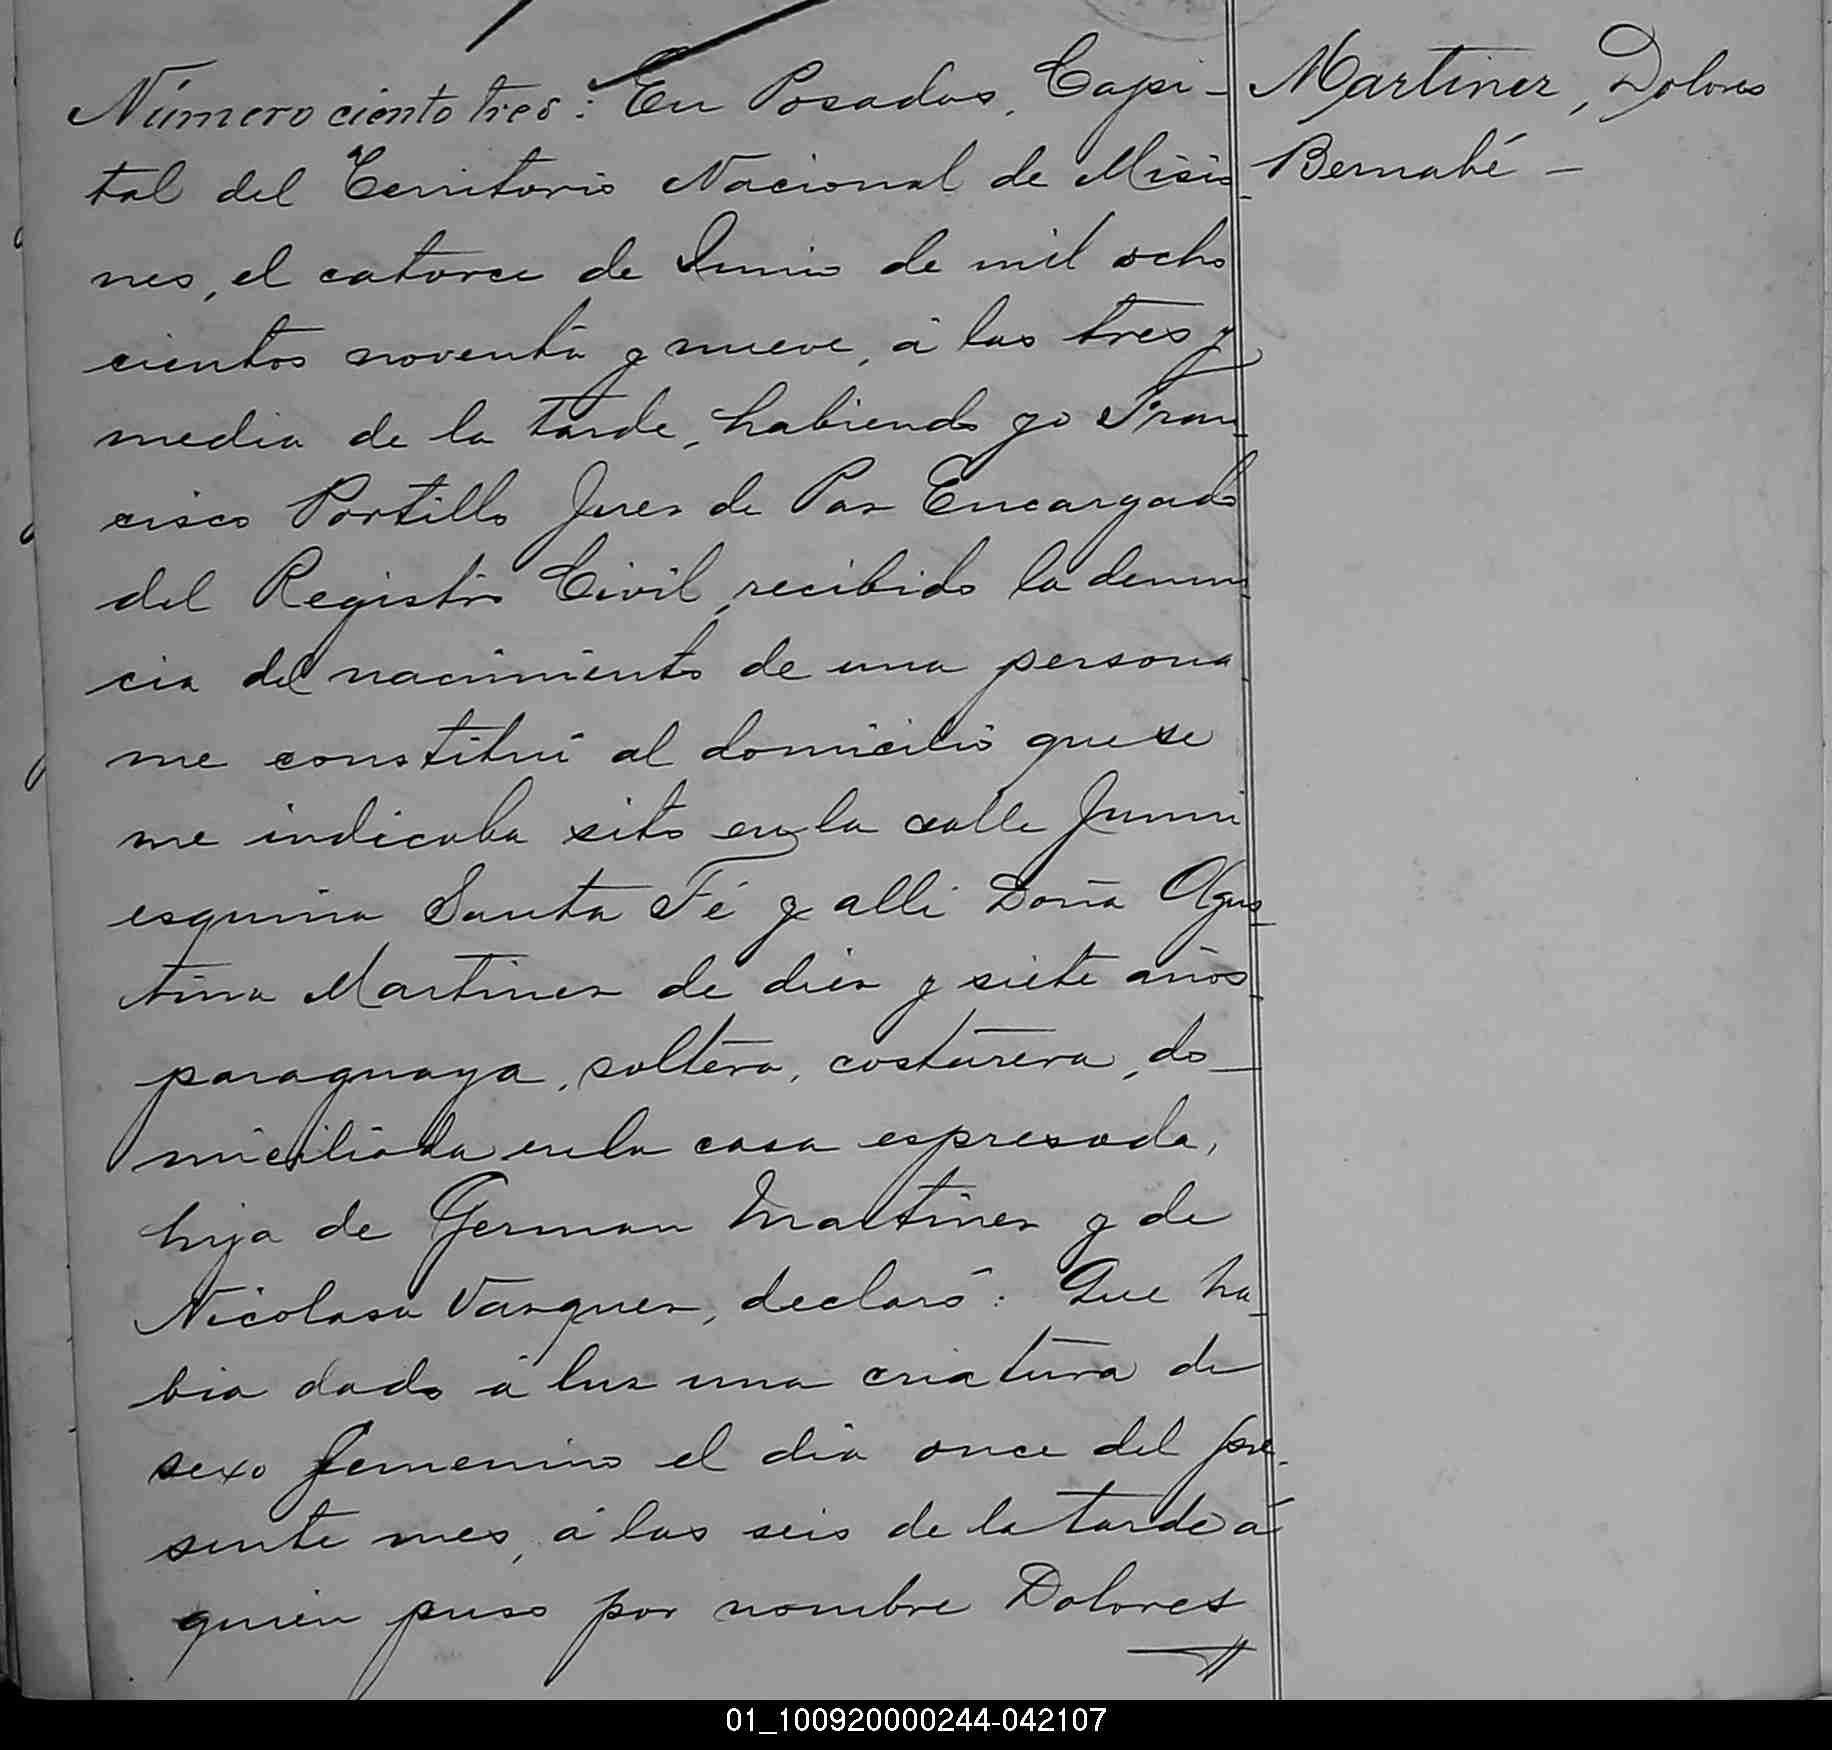 Martinez, Dolores
Bernabé –
Número ciento tres: En Posadas, Capi-
tal del Territorio Nacional de Misio-
nes, el catorce de Junio de mil ocho
cientos noventa y nueve, á las tres y
media de la tarde, habiendo yo Fran-
cisco Portillo Juez de Paz Encargado
del Registro Civil, recibido la denun-
cia del nacimiento de una persona
me constituí al domicilio que se
me indicaba sito en la calle Junin
esquina Santa Fé y alli Doña Agus-
tina Martinez de diez y siete años
paraguaya, soltera, costurera, do-
miciliada en la casa espresada,
hija de German Martinez y de
Nicolasa Vazquez, declaró: Que ha-
bia dado á luz una criatura de
sexo femenino el dia once del pre-
sente mes, á las seis de la tarde á
quien puso por nombre Dolores
01_100920000244-042107